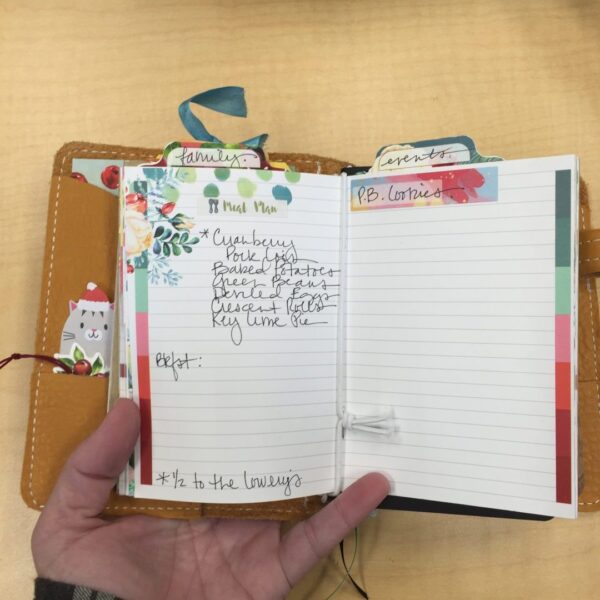 family.
events.
Meal Plan
P.B. Cookies.
* Cranberry
Pork Loin
Baked Potatoes
Green Beans
Deviled Eggs
Crescent Rolls
Key Lime Pie
Bkfst:
* 1/2 to the Lowery's